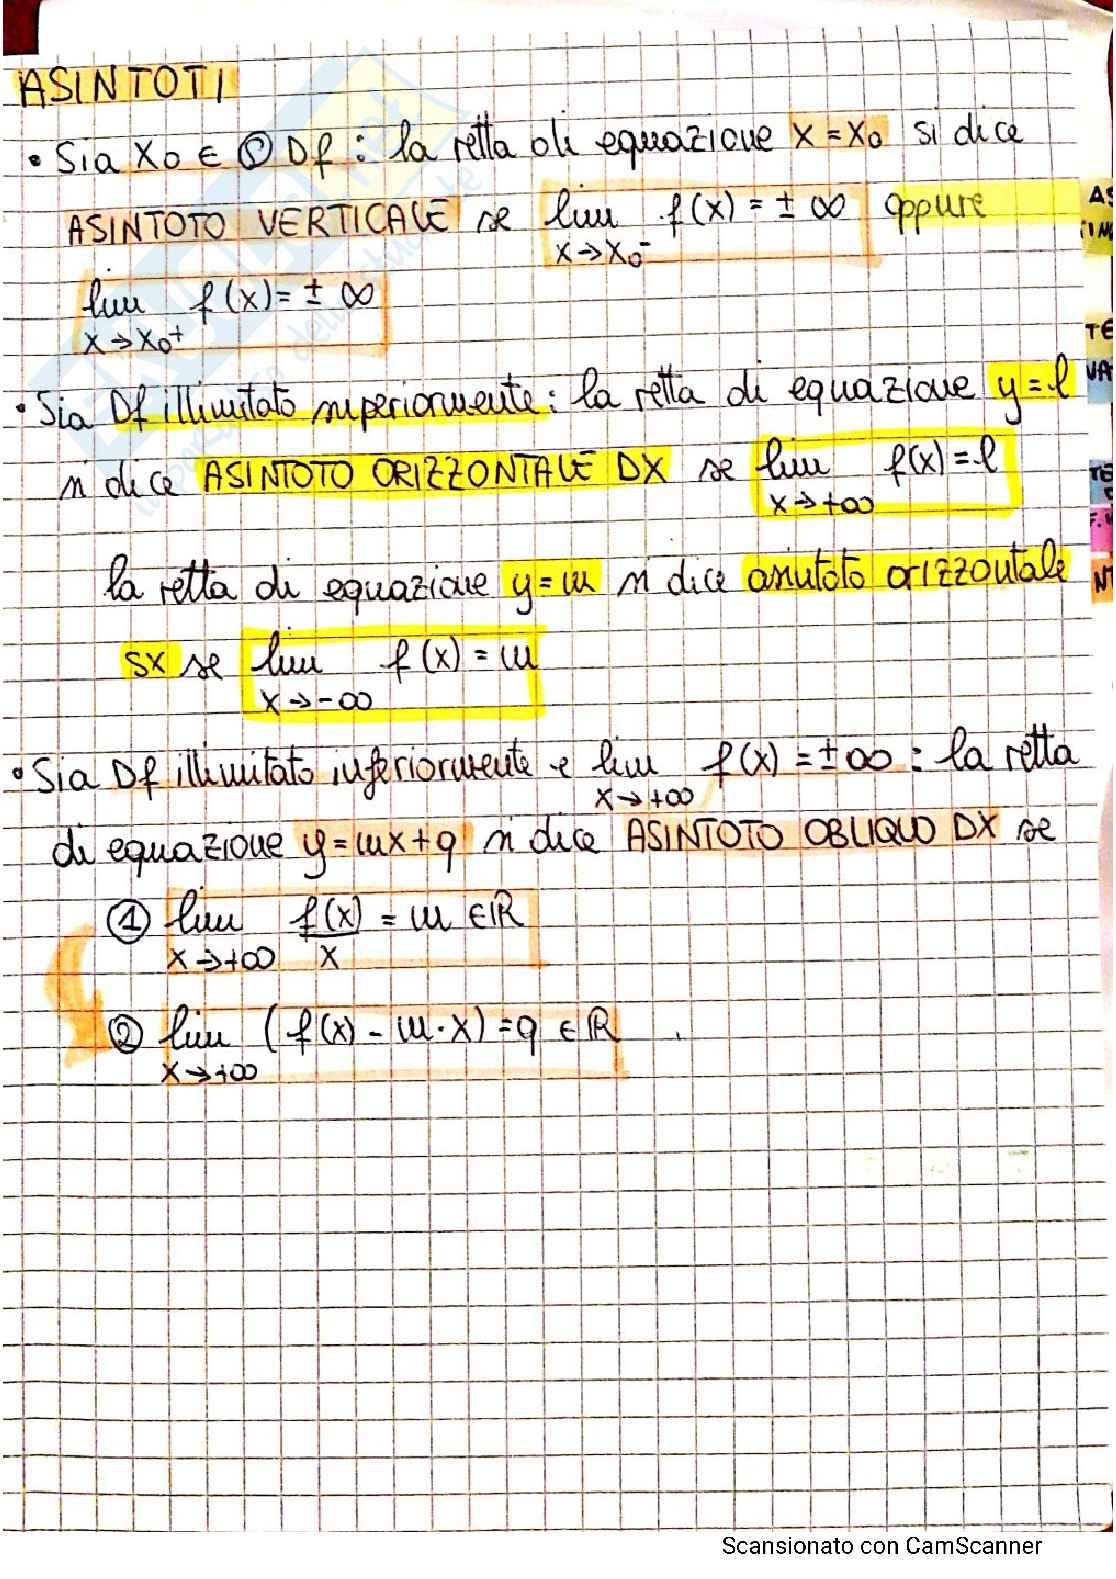 ASINTOTI
• Sia x₀ ∈ Ⓟ Df : la retta di equazione x = x₀ si dice
ASINTOTO VERTICALE se lim f(x) = ± ∞ oppure
x→x₀⁻
lim f(x) = ± ∞
x→x₀⁺
• Sia Df illimitato superiormente: la retta di equazione y = l
si dice ASINTOTO ORIZZONTALE DX se lim f(x) = l
x→+∞
la retta di equazione y = m si dice asintoto orizzontale
SX se lim f(x) = m
x→-∞
• Sia Df illimitato inferiormente e lim f(x) = ±∞ : la retta
x→+∞
di equazione y = mx + q si dice ASINTOTO OBLIQUO DX se
① lim f(x) = m ∈ ℝ
x→+∞ x
② lim (f(x) - m·x) = q ∈ ℝ
x→+∞
Scansionato con CamScanner